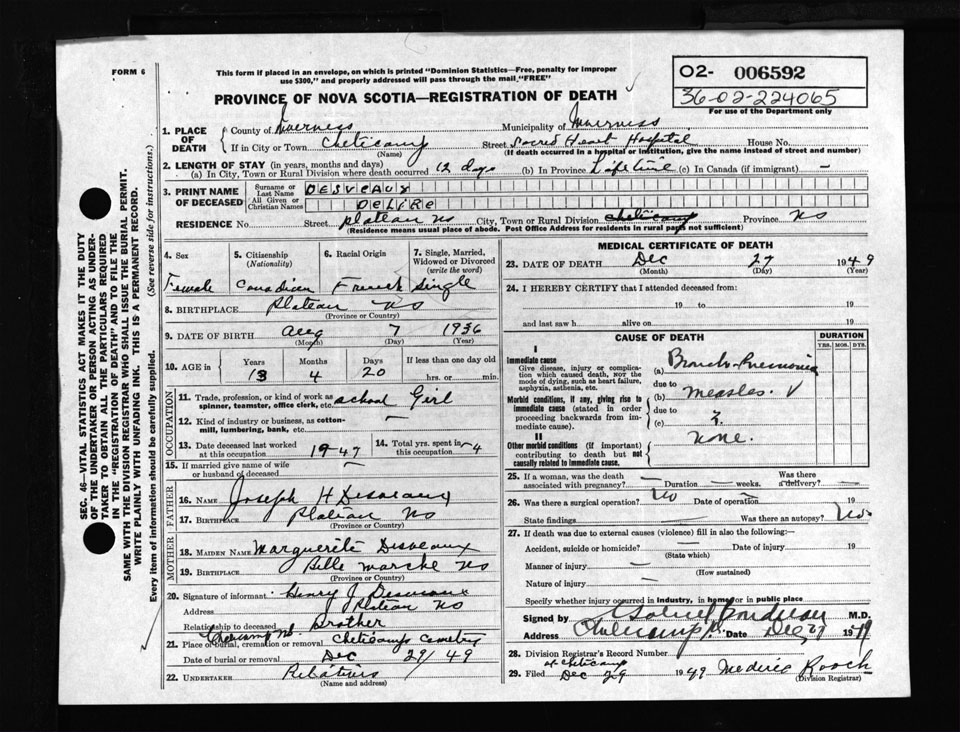 FORM 6
This form if placed in an envelope, on which is printed "Dominion Statistics—Free, penalty for improper
use $300," and properly addressed will pass through the mail "FREE"
O2- 006592
36-02-224065
For use of the Department only
PROVINCE OF NOVA SCOTIA—REGISTRATION OF DEATH
SEC. 46—VITAL STATISTICS ACT MAKES IT THE DUTY
OF THE UNDERTAKER OR PERSON ACTING AS UNDER-
TAKER TO OBTAIN ALL THE PARTICULARS REQUIRED
IN THE "REGISTRATION OF DEATH" AND TO FILE THE
SAME WITH THE DIVISION REGISTRAR WHO SHALL ISSUE THE BURIAL PERMIT.
WRITE PLAINLY WITH UNFADING INK. THIS IS A PERMANENT RECORD.
Every item of information should be carefully supplied. (See reverse side for instructions.)
1. PLACE OF DEATH County of Inverness Municipality of Inverness
If in City or Town Cheticamp (Name) Street Sacred Heart Hospital House No.
(If death occurred in a hospital or institution, give the name instead of street and number)
2. LENGTH OF STAY (in years, months and days)
(a) In City, Town or Rural Division where death occurred 12 days (b) In Province Lifetime (c) In Canada (if immigrant) —
3. PRINT NAME OF DECEASED Surname or Last Name DESVEAUX
All Given or Christian Names DELIRE
RESIDENCE No. Street Plateau NS City, Town or Rural Division Cheticamp Province NS
(Residence means usual place of abode. Post Office Address for residents in rural parts not sufficient)
4. Sex 5. Citizenship (Nationality) 6. Racial Origin 7. Single, Married, Widowed or Divorced (write the word)
Female Canadian French Single
8. BIRTHPLACE Plateau NS
(Province or Country)
9. DATE OF BIRTH Aug 7 1936
(Month) (Day) (Year)
10. AGE in Years Months Days If less than one day old
13 4 20 hrs. or min.
OCCUPATION
11. Trade, profession, or kind of work as spinner, teamster, office clerk, etc. School Girl
12. Kind of industry or business, as cotton-mill, lumbering, bank, etc. —
13. Date deceased last worked at this occupation 1947 14. Total yrs. spent in this occupation 4
15. If married give name of wife or husband of deceased —
FATHER
16. NAME Joseph H Desveaux
17. BIRTHPLACE Plateau NS
(Province or Country)
MOTHER
18. MAIDEN NAME Marguerite Desveaux
19. BIRTHPLACE Belle Marche NS
(Province or Country)
20. Signature of informant Henry J Desveaux
Address Plateau NS
Relationship to deceased Brother
Cheticamp NS
21. Place of burial, cremation or removal Cheticamp Cemetry
Date of burial or removal Dec 29/49
22. UNDERTAKER Relatives
(Name and address)
MEDICAL CERTIFICATE OF DEATH
23. DATE OF DEATH Dec 27 1949
(Month) (Day) (Year)
24. I HEREBY CERTIFY that I attended deceased from:
19 to 19
and last saw h alive on 19
CAUSE OF DEATH DURATION
YRS. MOS. DYS.
I
Immediate cause
Give disease, injury or complication which caused death, not the mode of dying, such as heart failure, asphyxia, asthenia, etc.
(a) Broncho-Pneumonia
due to
Morbid conditions, if any, giving rise to immediate cause (stated in order proceeding backwards from immediate cause).
(b) Measles. V
due to
(c)
II
Other morbid conditions (if important) contributing to death but not causally related to immediate cause.
None.
25. If a woman, was the death associated with pregnancy? — Duration — weeks. Was there a delivery? —
26. Was there a surgical operation? No Date of operation —
State findings — Was there an autopsy? No.
27. If death was due to external causes (violence) fill in also the following:—
Accident, suicide or homicide? — Date of injury 19
(State which)
Manner of injury —
(How sustained)
Nature of injury —
Specify whether injury occurred in industry, in home or in public place
Signed by M.D.
Address Cheticamp Date Dec 29 1949
28. Division Registrar's Record Number
at Cheticamp
29. Filed Dec 29 1949 Mederic Roach
(Division Registrar)